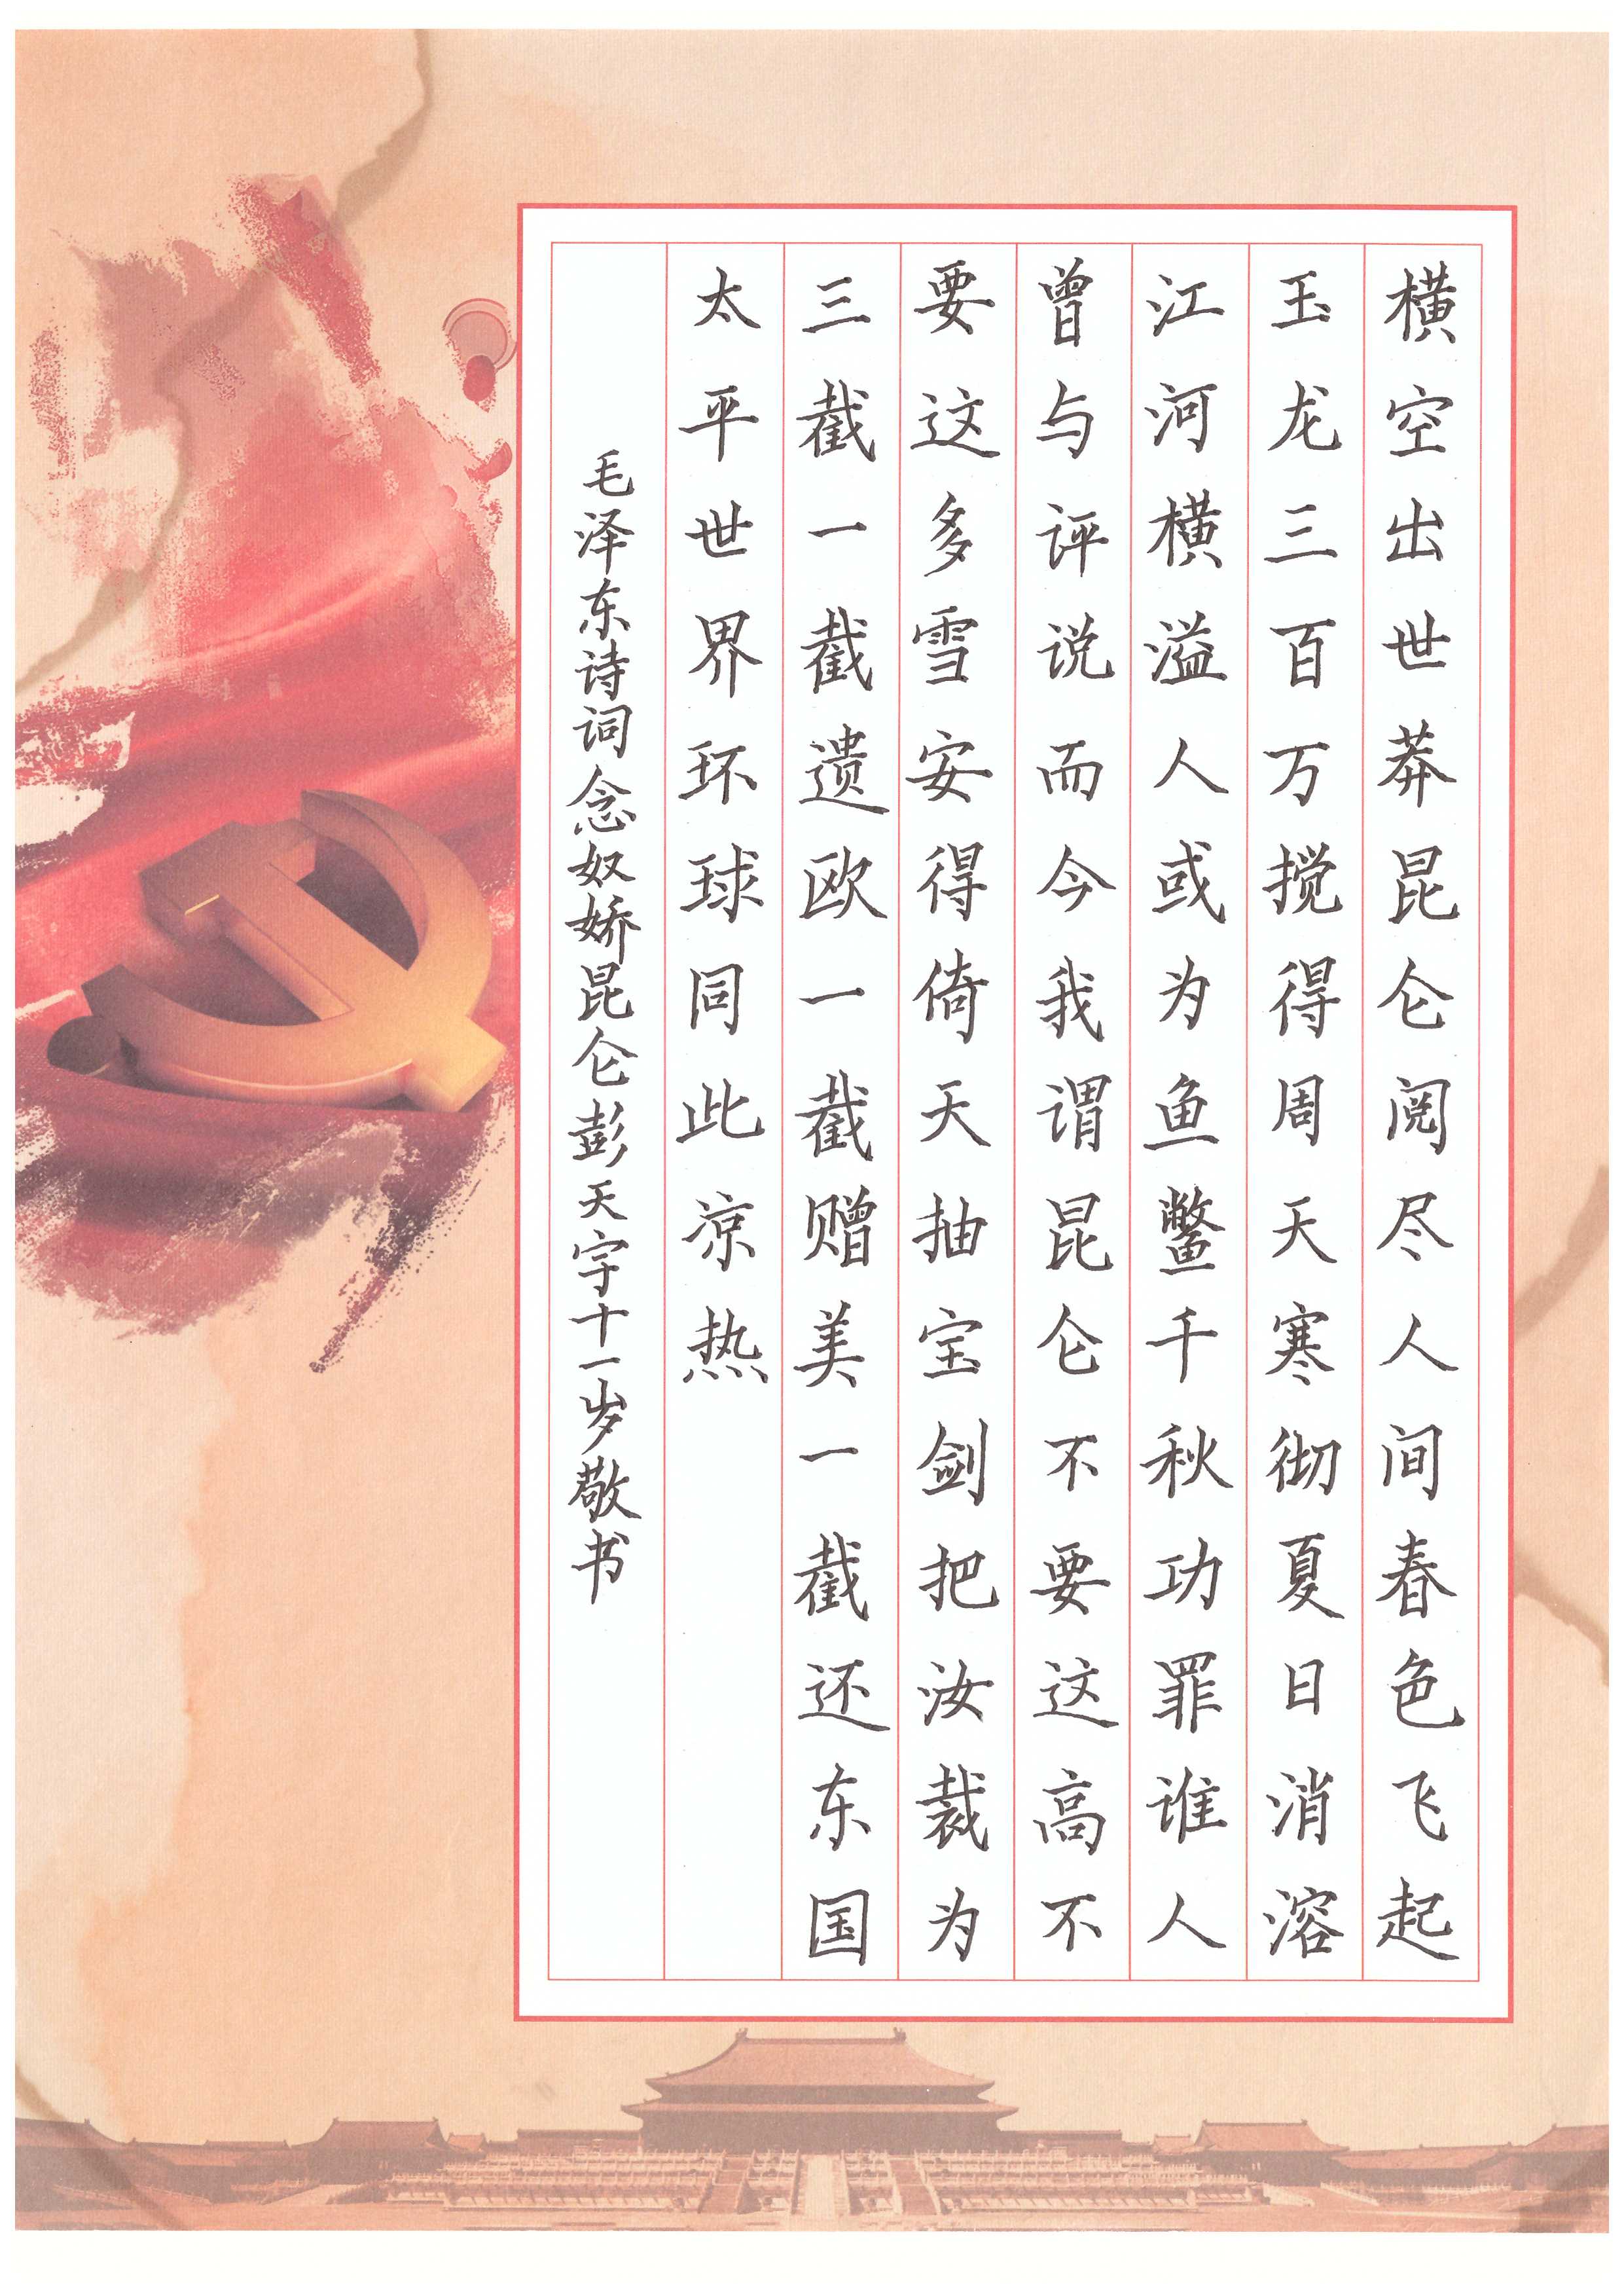 横空出世莽昆仑阅尽人间春色飞起
玉龙三百万搅得周天寒彻夏日消溶
江河横溢人或为鱼鳖千秋功罪谁人
曾与评说而今我谓昆仑不要这高不
要这多雪安得倚天抽宝剑把汝裁为
三截一截遗欧一截赠美一截还东国
太平世界环球同此凉热
毛泽东诗词念奴娇昆仑彭天宇十一岁敬书